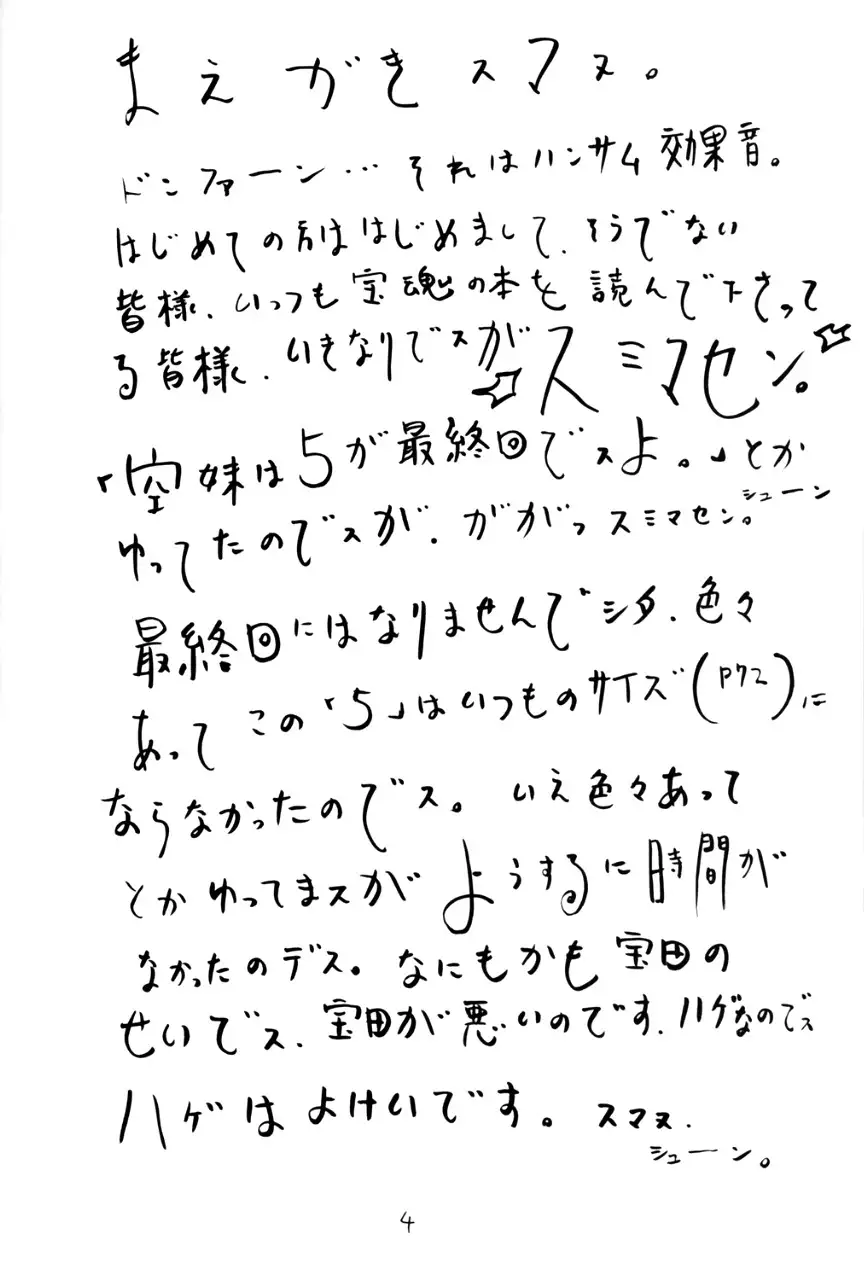 まえがきスマヌ。
ドンファーン…それはハンサム効果音。
はじめての方ははじめまして、そうでない
皆様、いつも宝魂の本を読んで下さって
る皆様、いきなりですが☆スミマセン。☆
「空妹は5が最終回でスよ。」とか
ゆってたのでスが、ががっスミマセン。シューン
最終回にはなりませんでシタ、色々
あってこの「5」はいつものサイズ(P72)に
ならなかったのでス。いえ色々あって
とかゆってまスがようするに時間が
なかったのデス。なにもかも宝田の
せいでス、宝田が悪いのです、ハゲなのでス
ハゲはよけいです。スマヌ、
シューン。
4